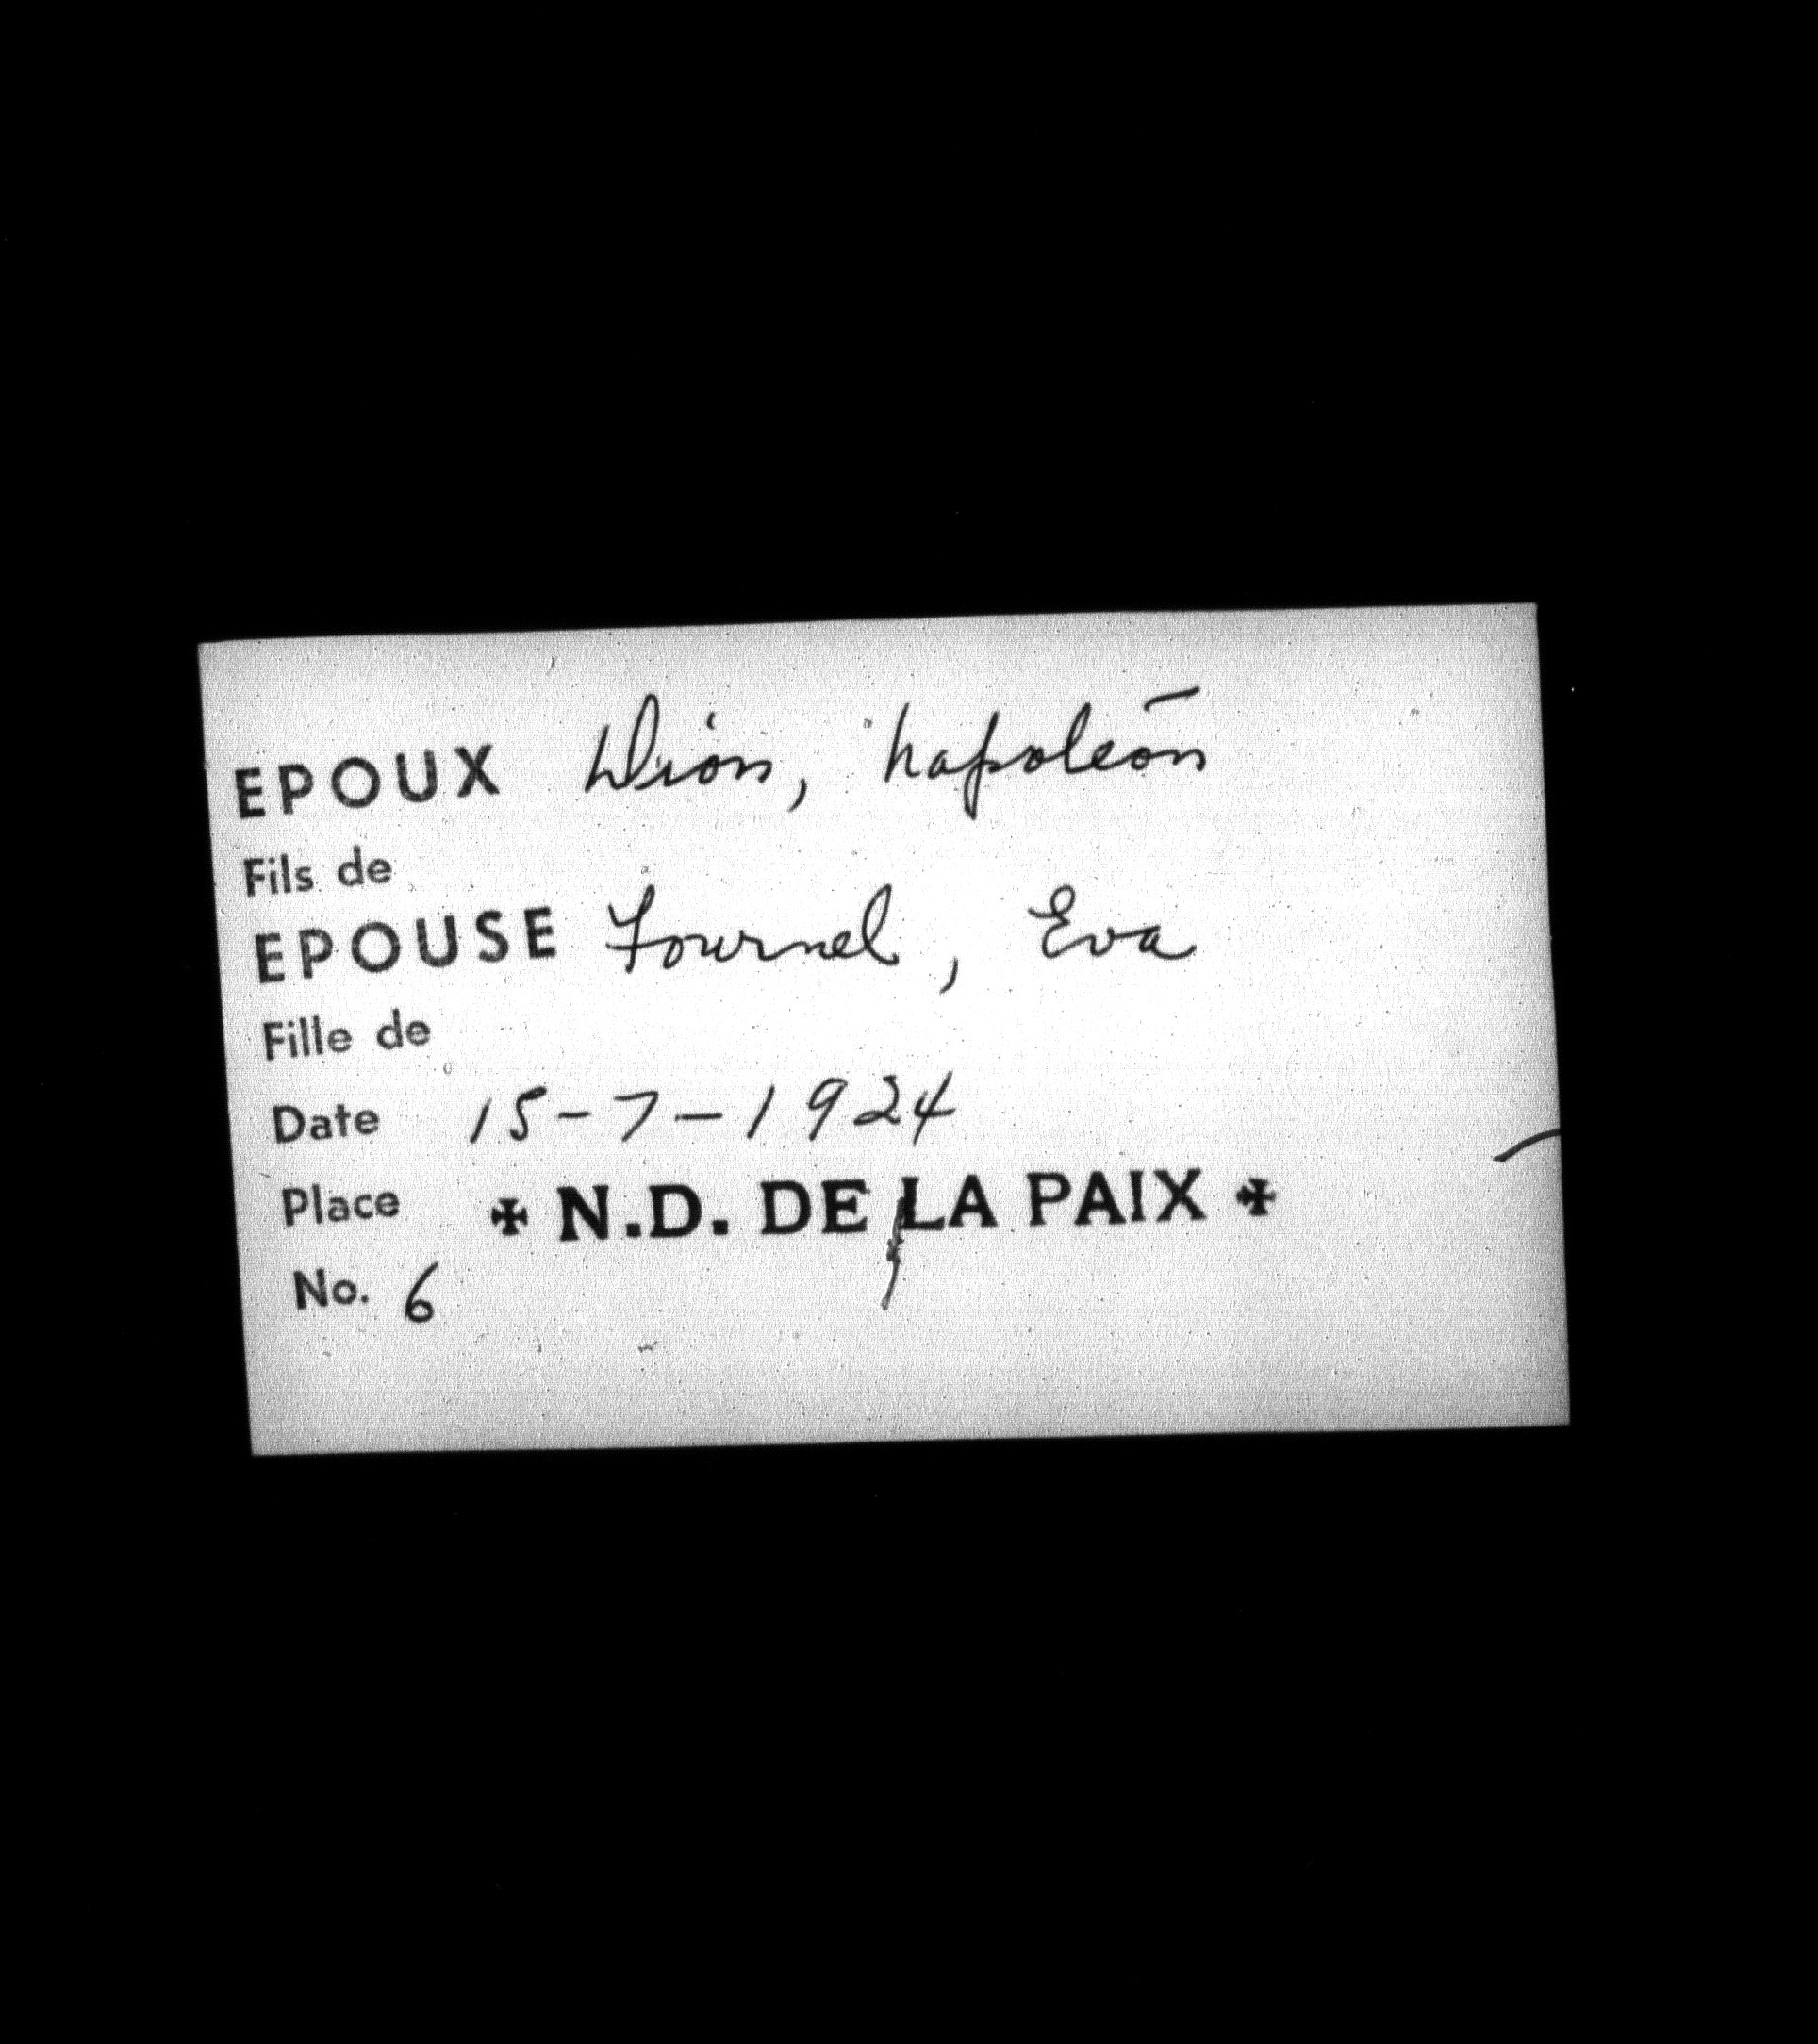 EPOUX Dion, Napoléon
Fils de
EPOUSE Fournel, Eva
Fille de
Date 15-7-1924
Place ✠ N.D. DE LA PAIX ✠
No. 6